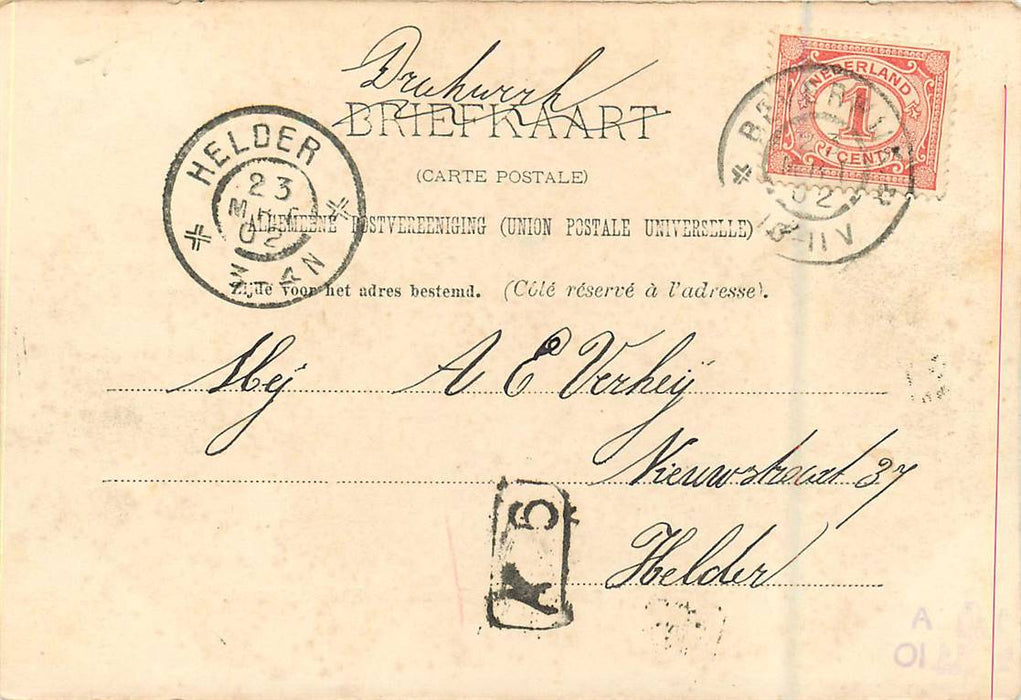 Drukwerk
BRIEFKAART
(CARTE POSTALE)
ALGEMEENE POSTVEREENIGING (UNION POSTALE UNIVERSELLE)
Zijde voor het adres bestemd. (Côté réservé à l'adresse).
NEDERLAND
1
CENT
HELDER
23
MRT
02
3-4N
02
10-11V
Mej A E Verheÿ
Nieuwstraat 37
Helder
5
A
01